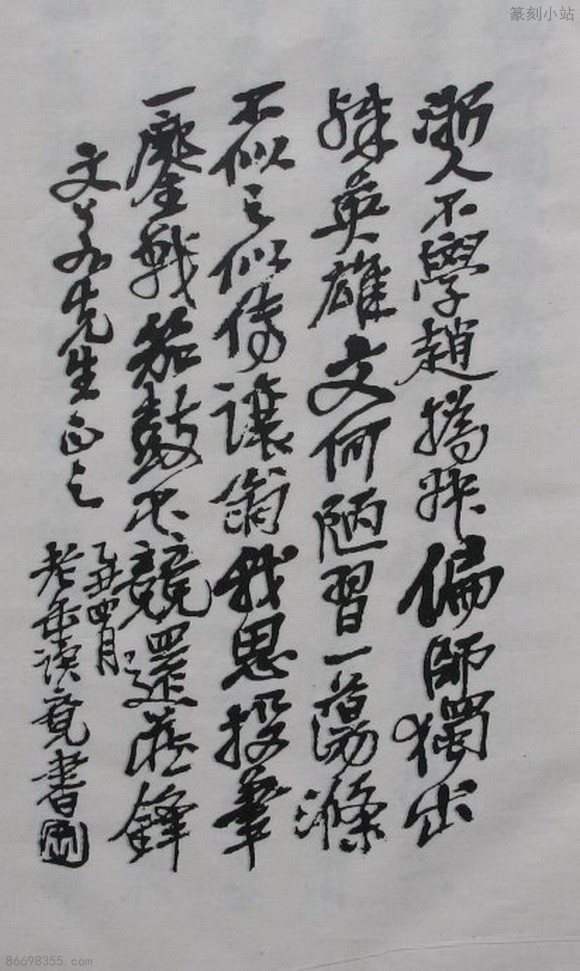 篆刻小站
浙人不學趙撝叔偏師獨出
殊英雄文何陋習一蕩滌
不似之似傳讓翁我思投筆
一鏖戰笳鼓不競還藏鋒
文先生正之
乙丑四月
老缶讀竟書
86698355.com